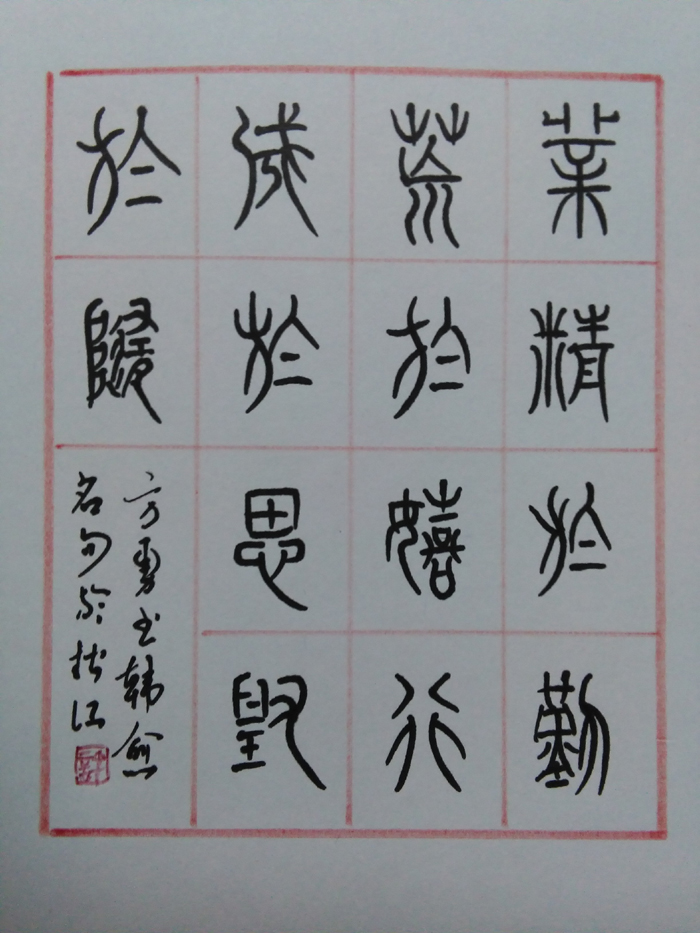 業精於勤
荒於嬉行
成於思毀
於隨
方勇书韩愈
名句於枝江